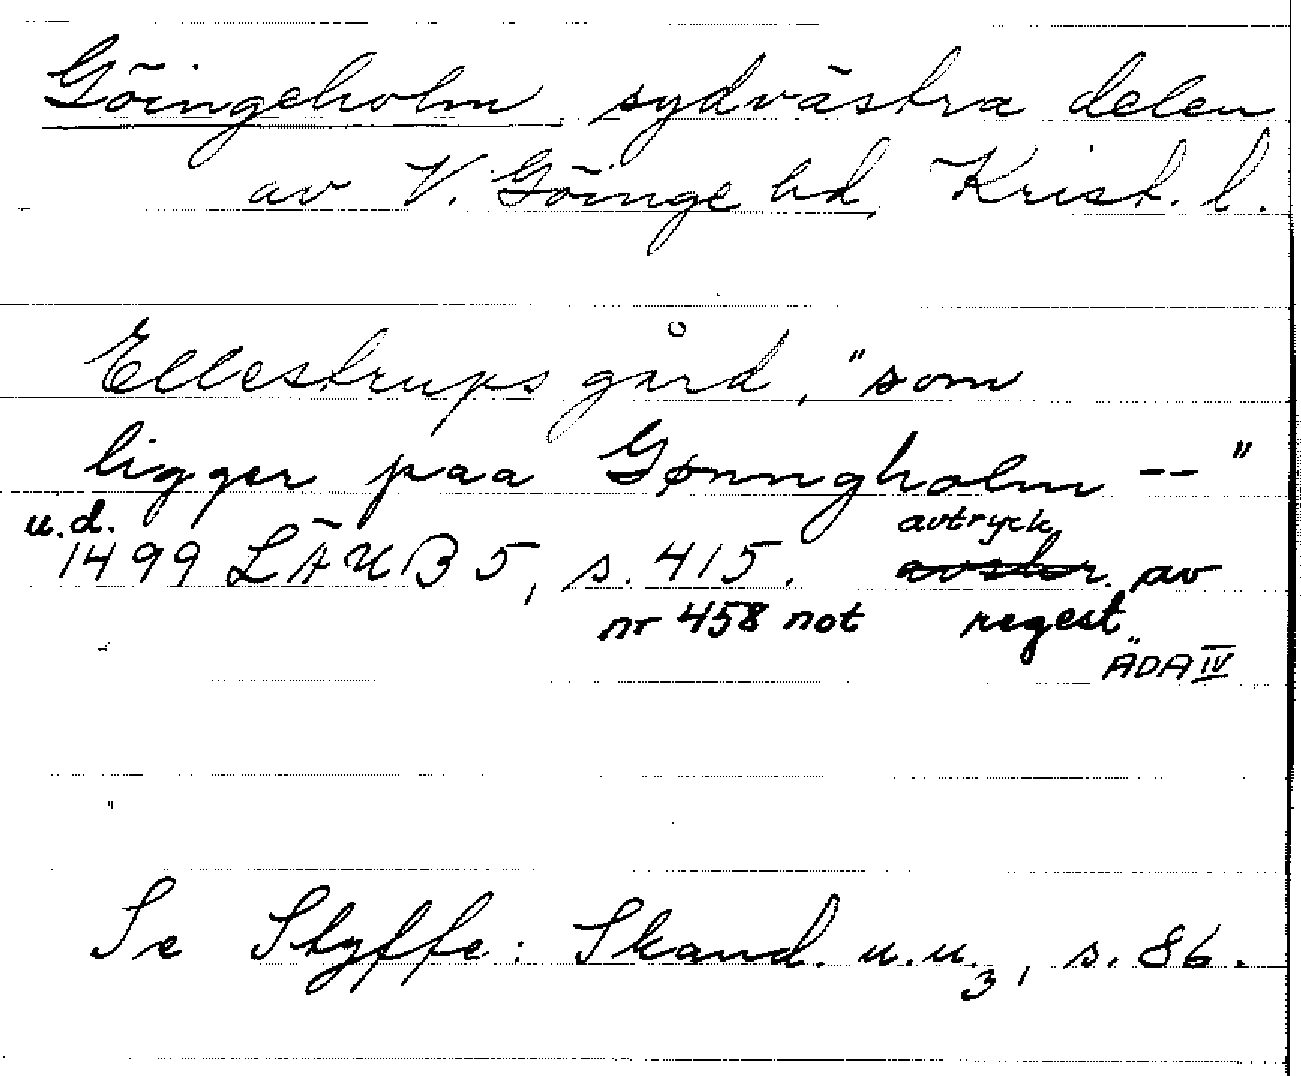 Göingeholm sydvästra delen
av V. Göinge hd, Krist. l.
Ellestrups gård, "som
ligger paa Gønngholm -- "
u.d.
1499 LÄUB 5, s. 415. avtryck av
nr 458 not regest
ÄDA IV
Se Styffe: Skand. u.u.3, s. 86.